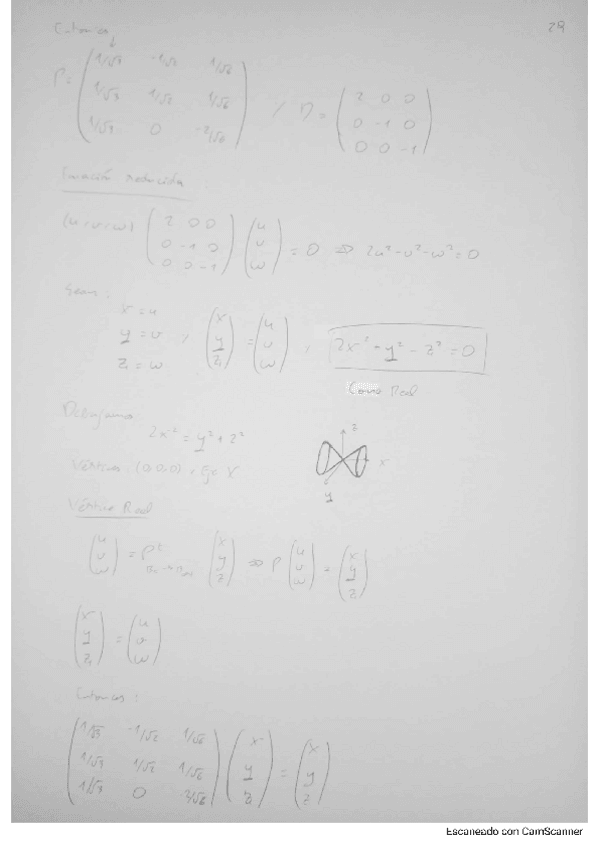 29
Entonces
P = (1/√3 -1/√2 1/√6
1/√3 1/√2 1/√6
1/√3 0 -2/√6) / D = (2 0 0
0 -1 0
0 0 -1)
Ecuación reducida
(u v w) (2 0 0
0 -1 0
0 0 -1) (u
v
w) = 0 ⇒ 2u² - v² - w² = 0
Sean:
x = u
y = v
z = w
, (x
y
z) = (u
v
w) , 2x² - y² - z² = 0
Cono Real
Dibujamos
2x² = y² + z²
z
x
y
Vértice (0,0,0), Eje X
Vértice Real
(u
v
w) = Pᵗ (x
y
z) ⇒ P (u
v
w) = (x
y
z)
(x
y
z) = (u
v
w)
Entonces:
(1/√3 -1/√2 1/√6
1/√3 1/√2 1/√6
1/√3 0 2/√6) (x
y
z) = (x
y
z)
Escaneado con CamScanner